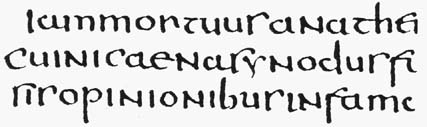 iam mortuus anathe
cui nicaena synodus fi
sis opinionibus infame